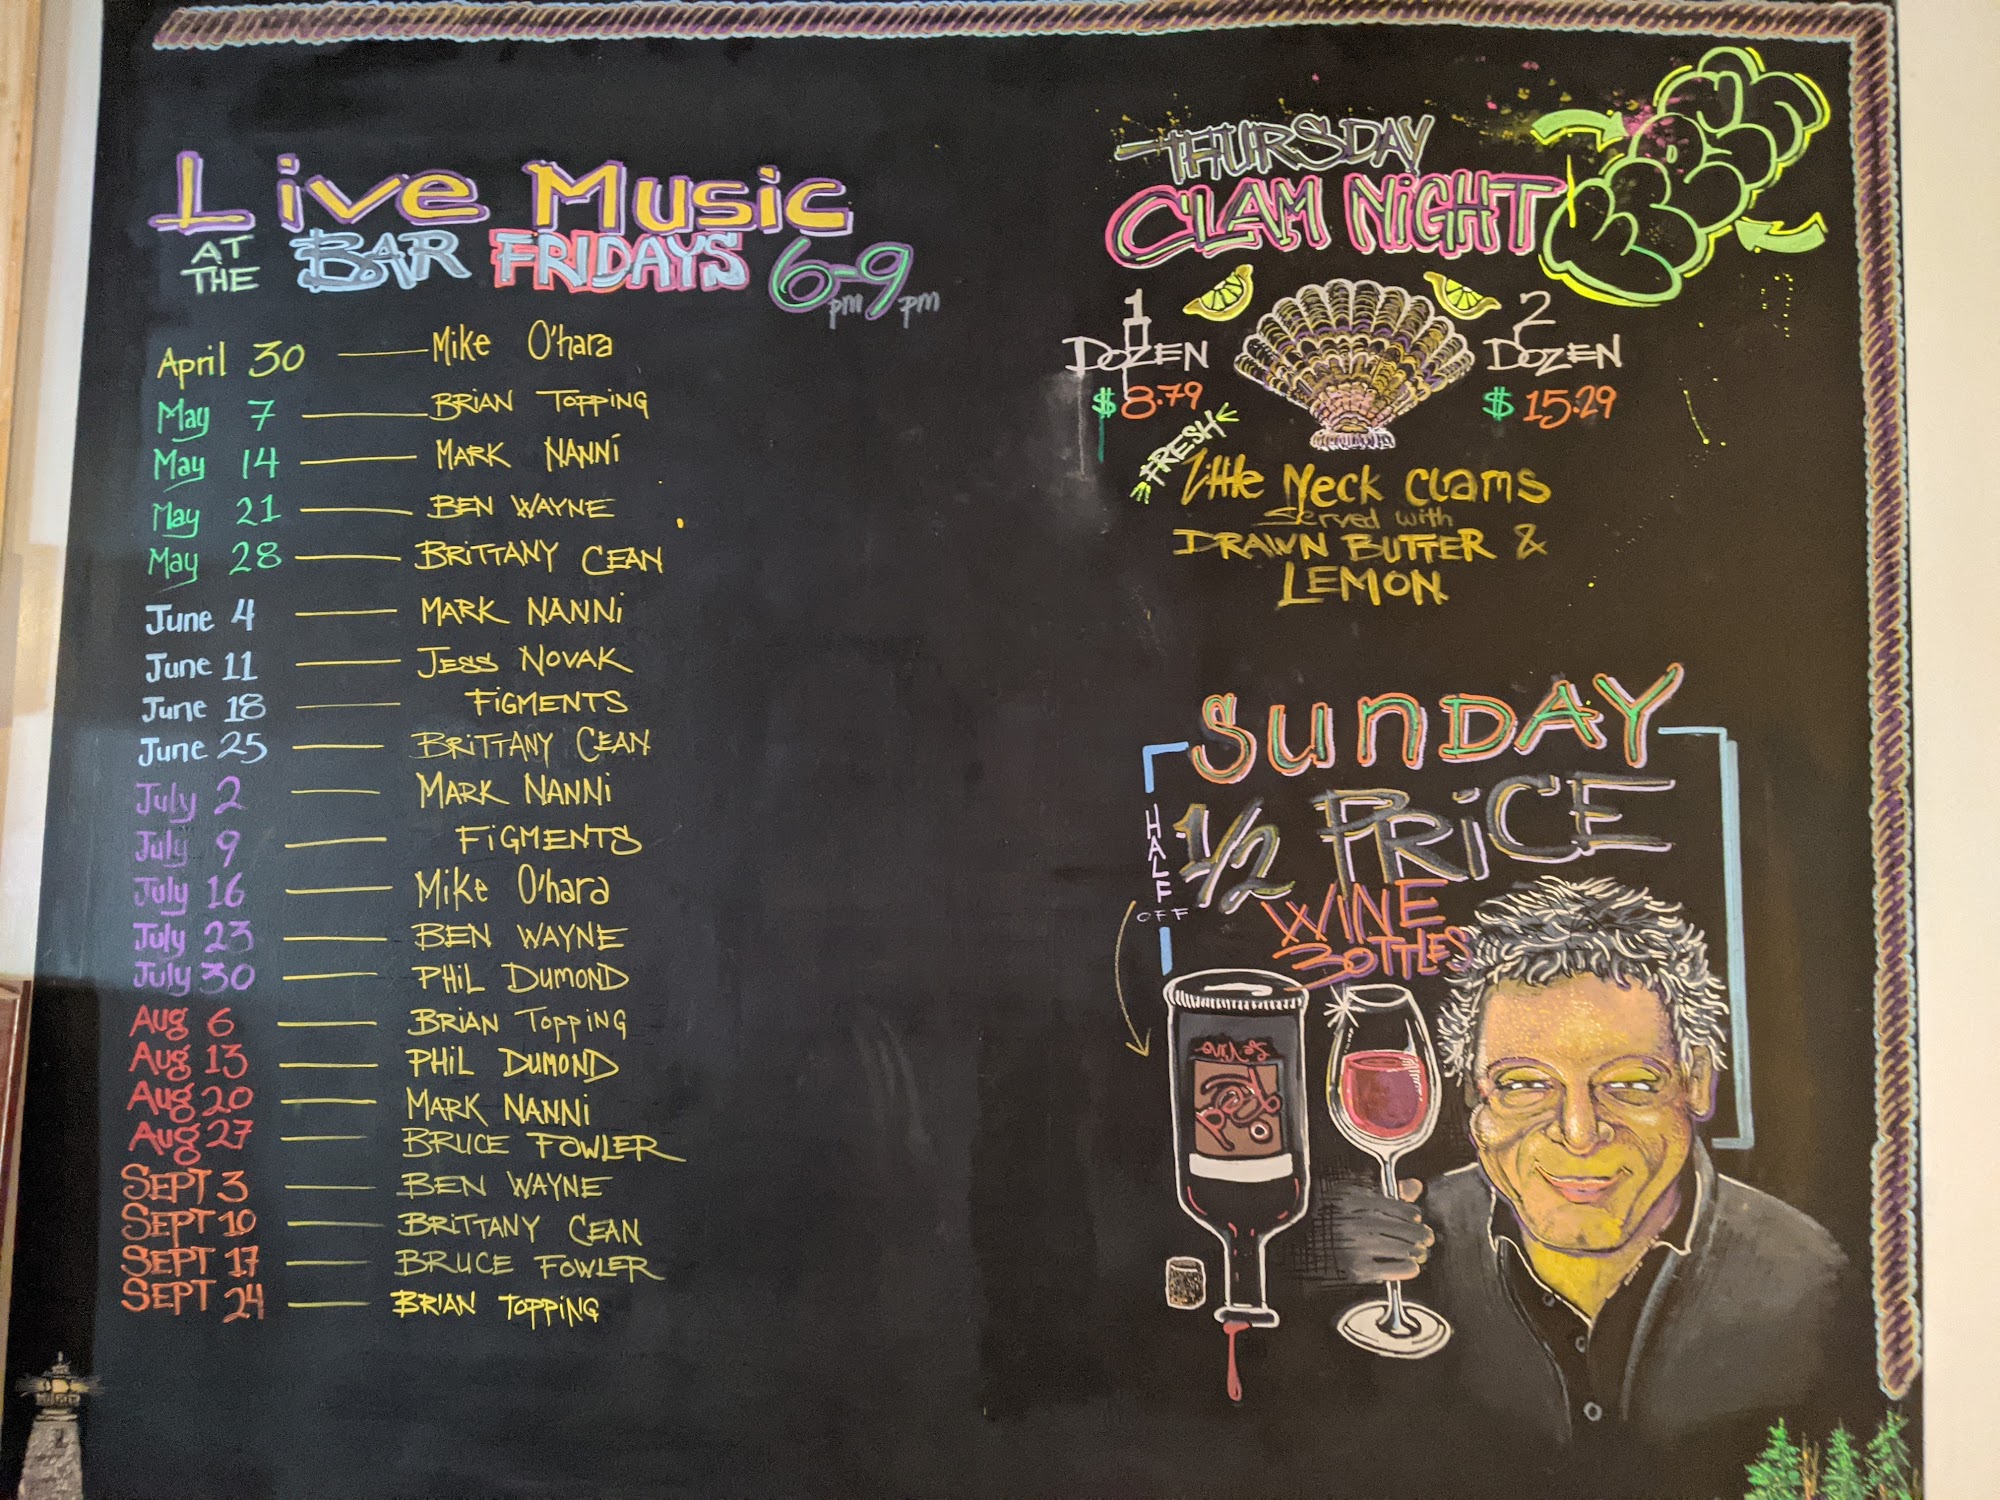 Live Music
AT THE BAR FRIDAYS 6pm-9pm
April 30 — Mike O'hara
May 7 — BRIAN TOPPING
May 14 — MARK NANNi
May 21 — BEN WAYNE
May 28 — BRiTTANY CEAN
June 4 — MARK NANNi
June 11 — JESS NOVAK
June 18 — FiGMENTS
June 25 — BRiTTANY CEAN
July 2 — MARK NANNi
July 9 — FiGMENTS
July 16 — Mike O'hara
July 23 — BEN WAYNE
July 30 — PHiL DUMOND
Aug 6 — BRIAN TOPPiNG
Aug 13 — PHiL DUMOND
Aug 20 — MARK NANNi
Aug 27 — BRUCE FOWLER
SEPT 3 — BEN WAYNE
SEPT 10 — BRiTTANY CEAN
SEPT 17 — BRUCE FOWLER
SEPT 24 — BRIAN TOPPiNG
THURSDAY
CLAM NiGHT
1 DOZEN
$8.79
2 DOZEN
$15.29
FRESH
Little Neck Clams
Served with
DRAWN BUTTER &
LEMON
SUNDAY
1/2 PRiCE
WINE
BOTTLES
HALF
OFF
Red